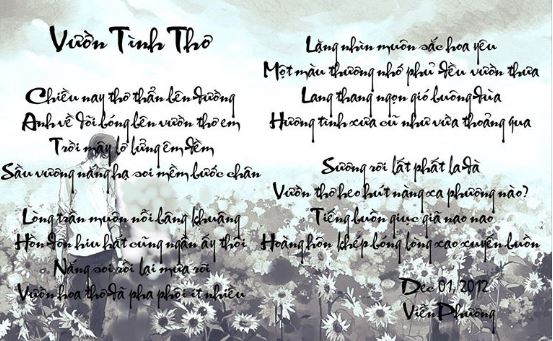 Vườn Tình Thơ
Chiều nay thơ thẩn bên đường
Anh về đôi bóng bên vườn thơ em
Trời mây lơ lửng êm đềm
Sầu vương nắng hạ soi mềm bước chân
Lòng trần muôn nỗi bâng khuâng
Hờn dỗn hiu hắt cũng ngần ấy thôi
Nắng soi rồi lại mưa rơi
Vườn hoa thơ đã pha phôi ít nhiều
Lặng nhìn muôn sắc hoa yêu
Một màu thương nhớ phủ đều vườn thưa
Lang thang ngọn gió buông đùa
Hương tình xưa cũ như vừa thoảng qua
Sương rơi lất phất la đà
Vườn thơ heo hút nàng xa phương nào?
Tiếng buồn giục giã nao nao
Hoàng hôn khép bóng lòng xao xuyến buồn
Dec 01, 2012
Viễn Phương